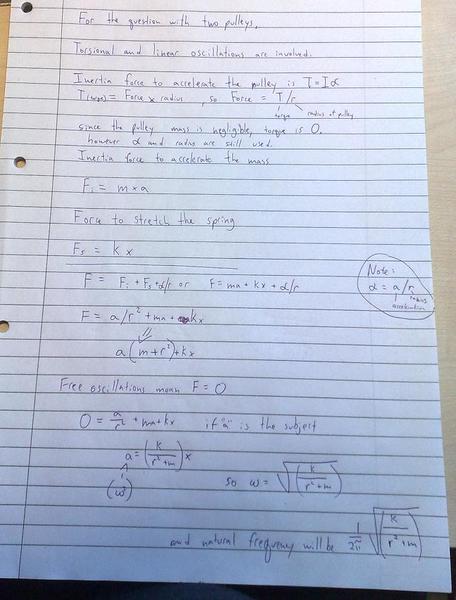 For the question with two pulleys,
Torsional and linear oscillations are involved.
Inertia force to accelerate the pulley is T = Iα
T(torque) = Force × radius, so Force = T/r
torque radius of pulley
since the pulley mass is negligible, torque is 0.
however α and radius are still used.
Inertia force to accelerate the mass
Fi = m×a
Force to stretch the spring
Fs = kx
F = Fi + Fs + α/r or F = ma + kx + α/r
Note:
α = a/r
radius
acceleration
F = a/r² + ma + kx
a(m+r²)+kx
Free oscillations mean F = 0
0 = a/r² + ma + kx if "a" is the subject
a = (k/r²+m)x
(ω²)
so ω = √(k/r²+m)
and natural frequency will be 1/2π √(k/r²+m)